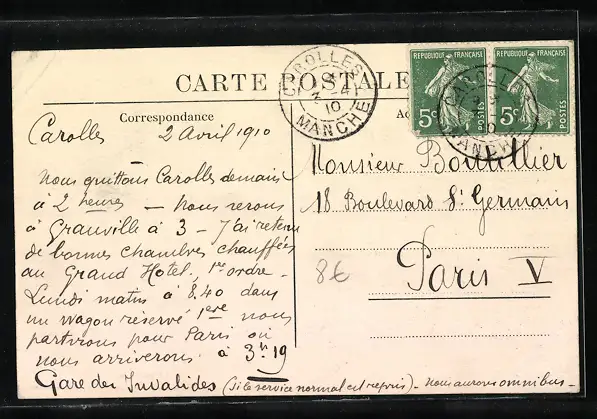 CARTE POSTALE
Correspondance
CAROLLES
2 -4
10
MANCHE
REPUBLIQUE FRANÇAISE
5c
POSTES
REPUBLIQUE FRANÇAISE
5c
POSTES
CAROLLES
MANCHE
Carolles 2 Avril 1910
Nous quittons Carolles demain
à 2 heures — nous serons
à Granville à 3 - J'ai retenu
de bonnes chambres chauffées
au Grand Hotel, 1er ordre -
Lundi matin à 8.40 dans
un wagon réservé 1ere nous
partirons pour Paris où
nous arriverons à 3h 19
Gare des Invalides (si le service normal est repris) - nous aurons omnibus -
Monsieur Bouthillier
18 Boulevard St Germain
Paris V
8€